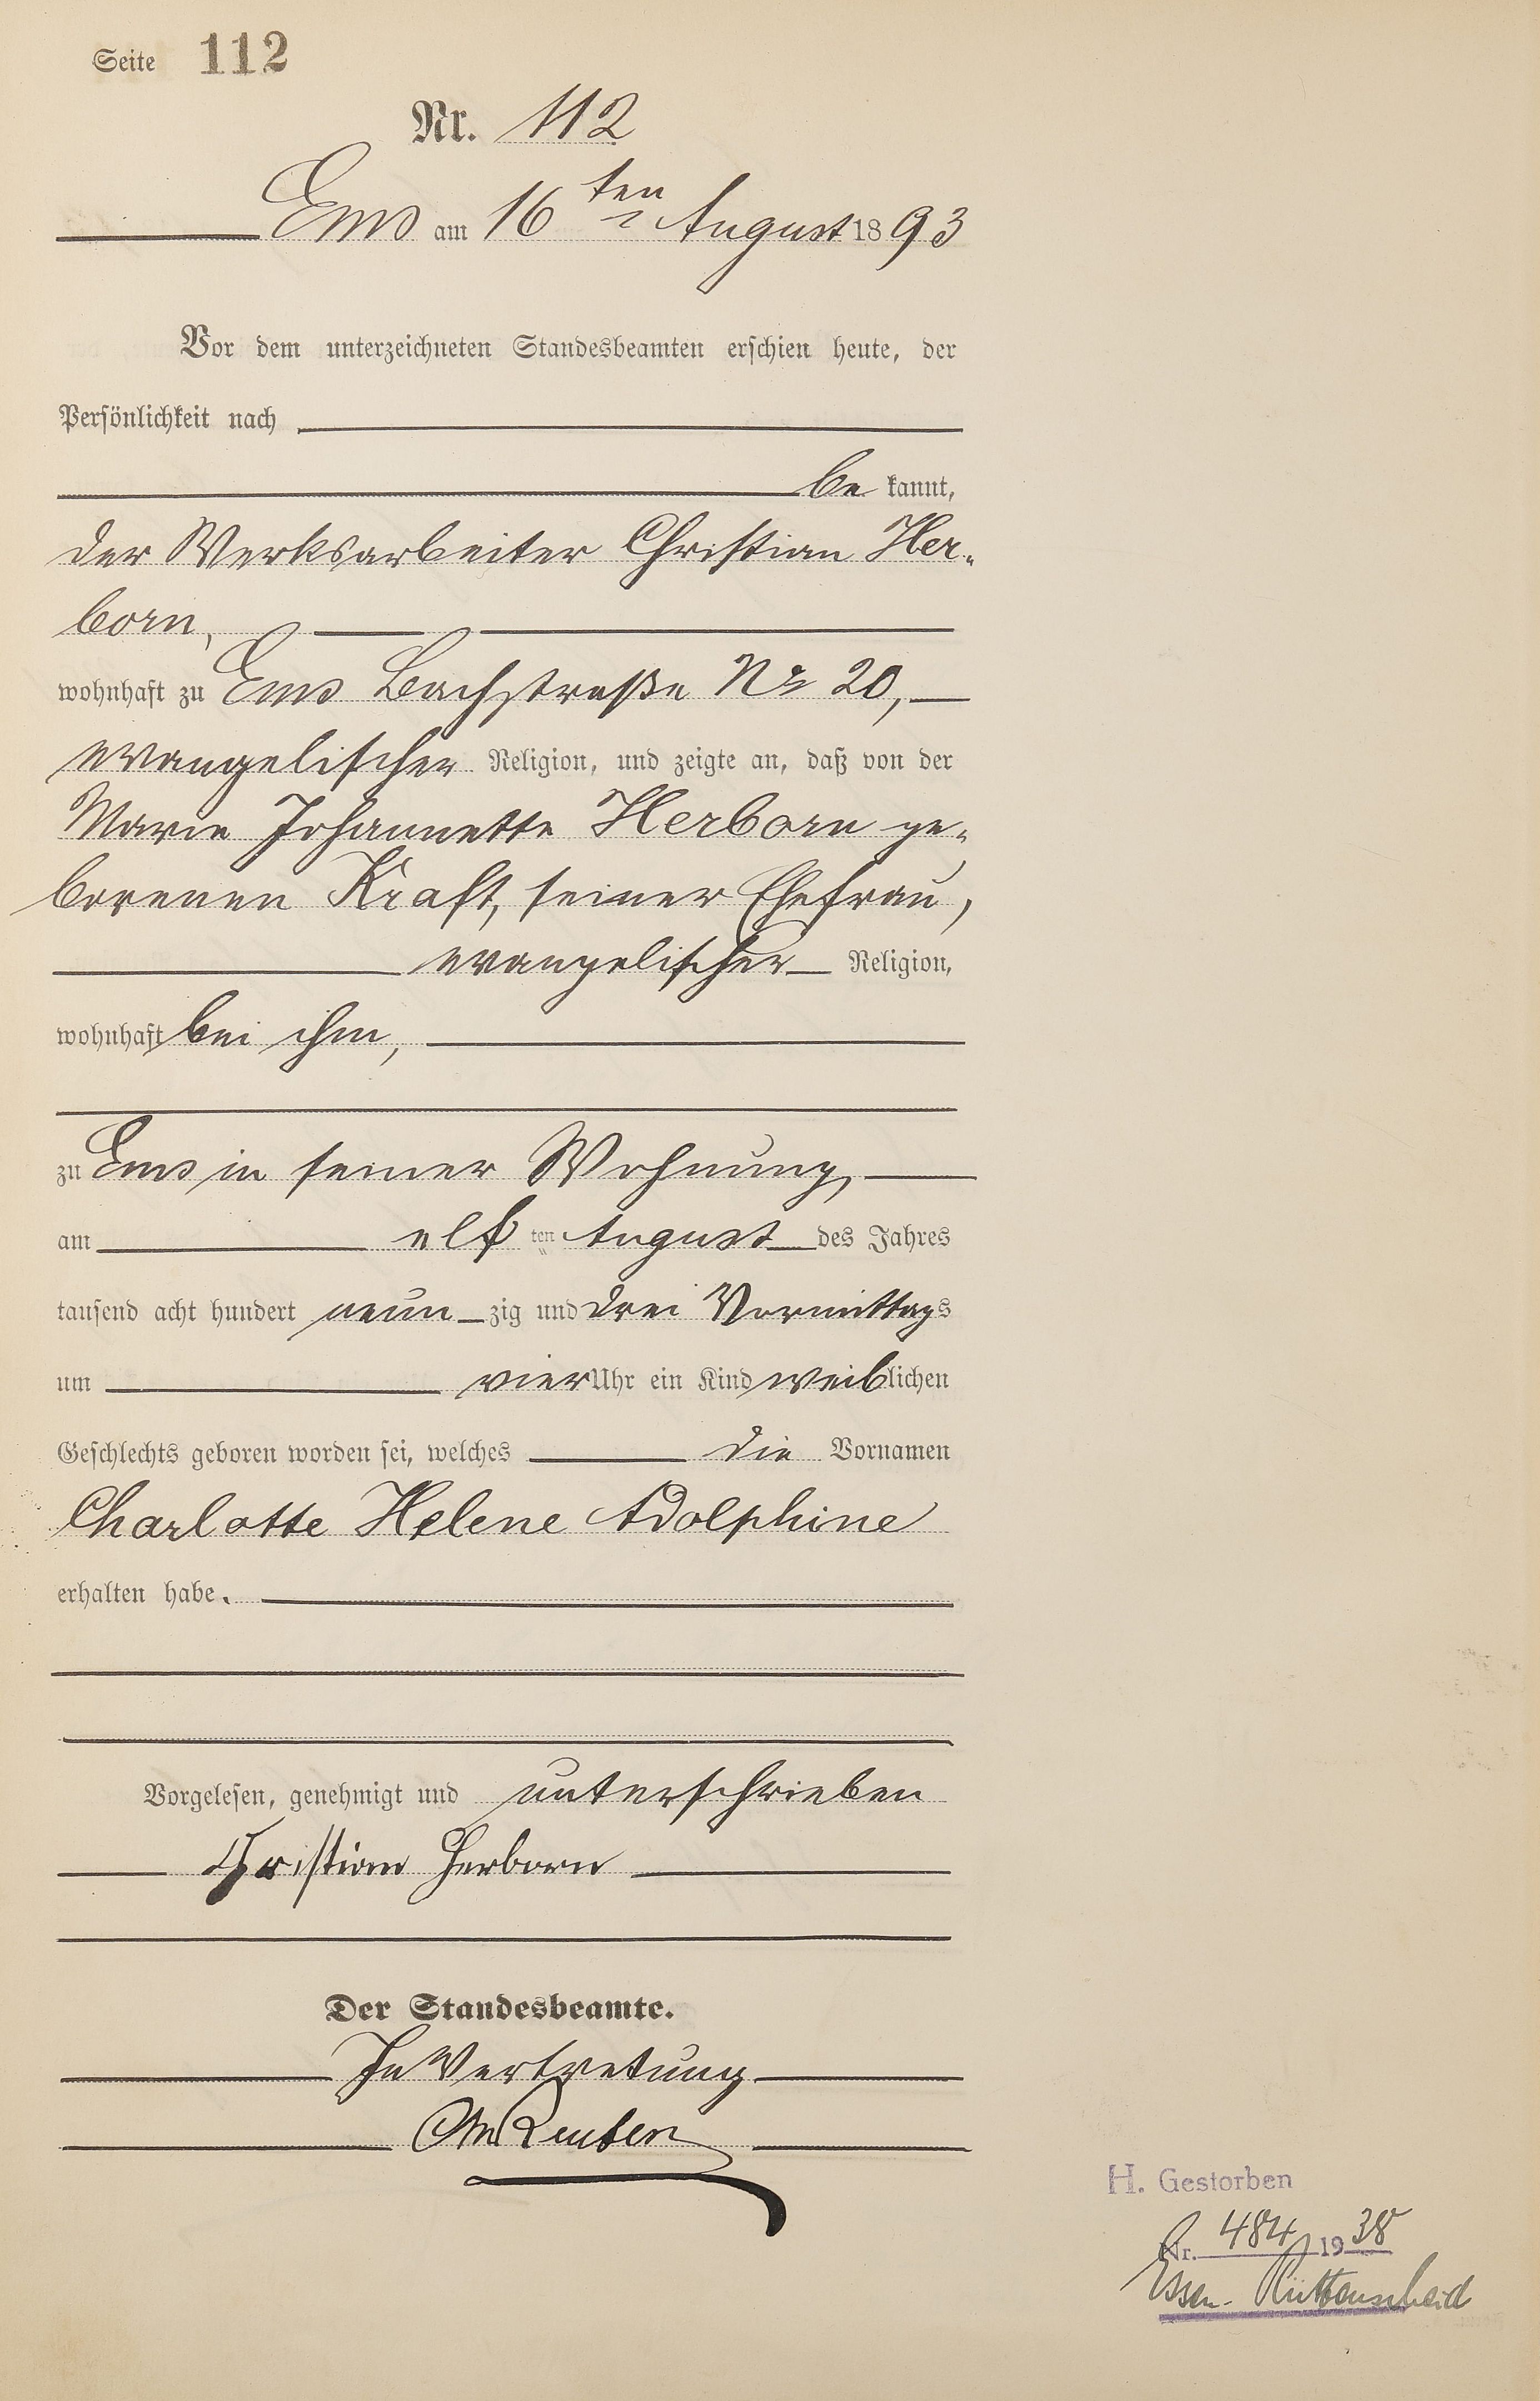 Seite 112
Nr. 112
Ems am 16ten August 1893
Vor dem unterzeichneten Standesbeamten erschien heute, der
Persönlichkeit nach
be kannt,
der Werksarbeiter Christian Her-
born,
wohnhaft zu Ems Bachstraße Nr 20,
evangelischer Religion, und zeigte an, daß von der
Marie Johannette Herborn ge-
borenen Kraft, seiner Ehefrau,
evangelischer Religion,
wohnhaft bei ihm,
zu Ems in seiner Wohnung,
am elf ten August des Jahres
tausend acht hundert neun zig und drei Vormittags
um vier Uhr ein Kind weiblichen
Geschlechts geboren worden sei, welches die Vornamen
Charlotte Helene Adolphine
erhalten habe.
Vorgelesen, genehmigt und unterschrieben
Christian Herborn
Der Standesbeamte.
In Vertretung
H. Gestorben
Nr. 484 1938
Essen-Rüttenscheid